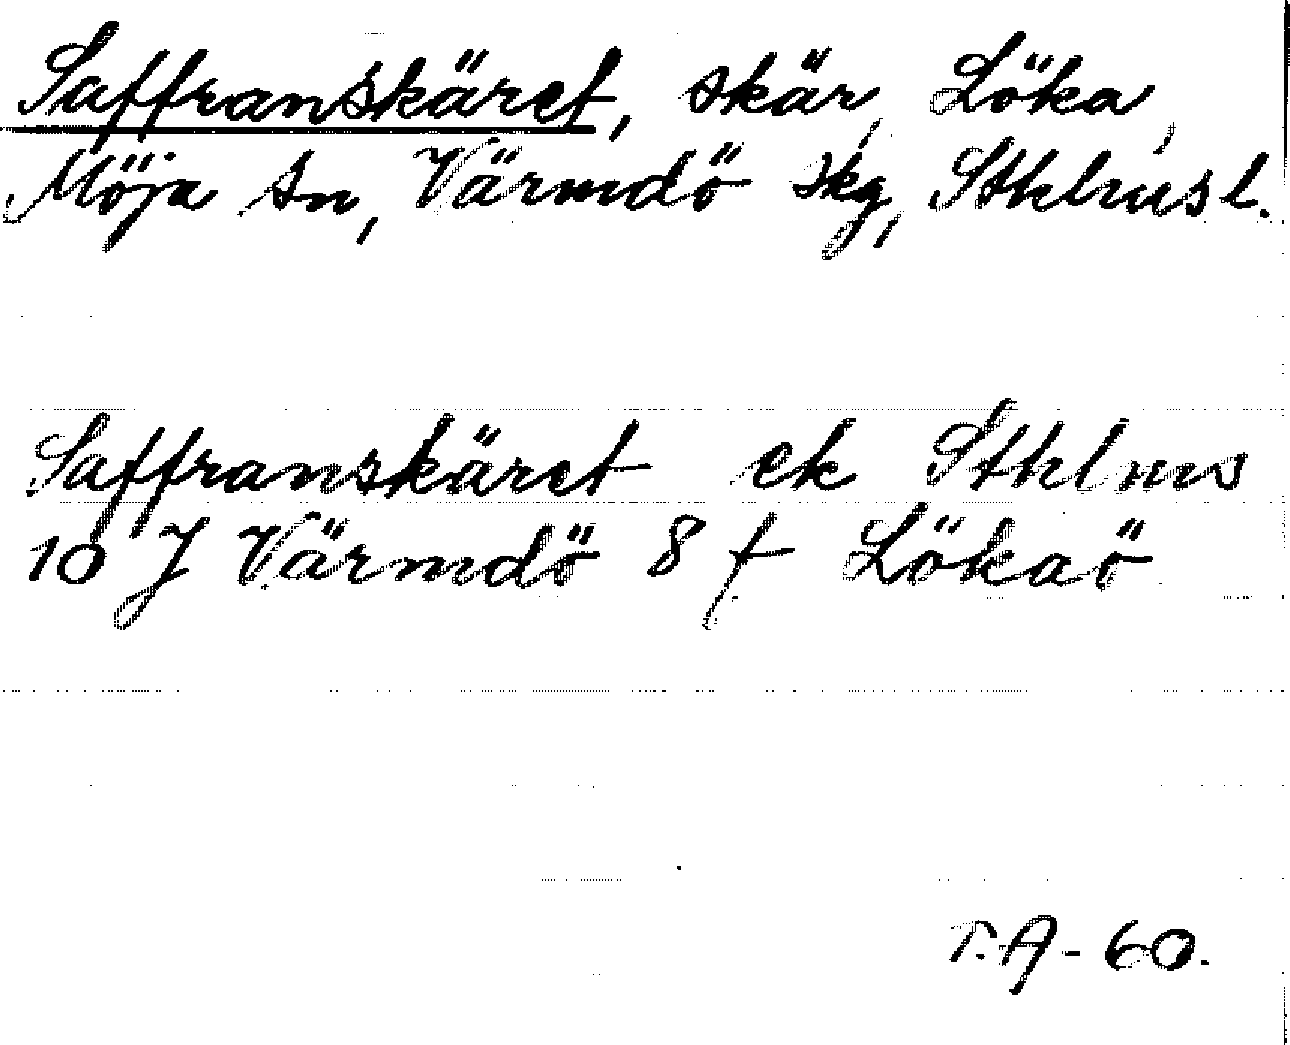 Saffranskäret, skär, Löka,
Möja sn, Värmdö skg, Sthlms l.
Saffranskäret ek Sthlms
10 J Värmdö 8 f Lökaö
T.A-60.